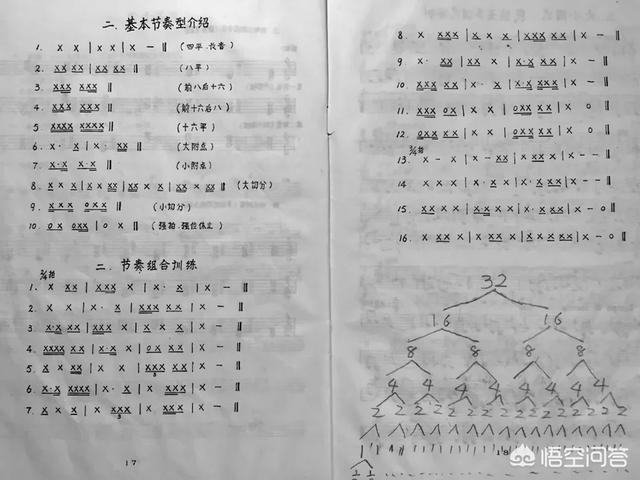 二. 基本节奏型介绍
1. X X | X X | X — ‖ (四平.长音)
2. XX XX | XX XX ‖ (八平)
3. XXX XXX ‖ (前八后十六)
4. XXX XXX ‖ (前十六后八)
5 XXXX XXXX ‖ (十六平)
6. X· X | X· XX ‖ (大附点)
7. X·X X·X ‖ (小附点)
8. X X X | X XX | XX X X | XX X XX ‖ (大切分)
9. XXX 0XX ‖ (小切分)
10. 0X 0XX | 0X ‖
二. 节奏组合训练
2/4拍
1. X XX | X X | X· X | X — ‖
2. X X X | X· X | XXX XX | X — ‖
3. X·X XX | XXX X | X X X | X — ‖
4. XXXX XX | X· X | 0X XX | X — ‖
5. X XX | XX X | XXX XX | X — ‖
6. X·X XXX | X· X | XXX XX | X — ‖
7. X X X | X XXX | XX X | X — ‖
3
17
8. X XXX | XX X | X·X XX | X — ‖
9. X·X XX | X X X | X XXX | X — ‖
10. XX XXX | X X | X·X XXX | X — ‖
11. 0XX XX | X X | 0XX XX | X 0 ‖
12. 0XX XX | X X X | 0XX XX | X 0 ‖
3/4拍
13. X — X | X· X X | XX XX X | X — — ‖
14 X X X | X· X X | X XX X | X — 0 ‖
15. XXX XX X | X· X X | XX XX X | X — 0 ‖
16. XX XX X | X· X X | X XXX XX | X — 0 ‖
32
16 16
8 8 8 8
4 4 4 4 4 4 4 4
2 2 2 2 2 2 2 2 2 2 2 2 2 2 2 2
18
悟空问答